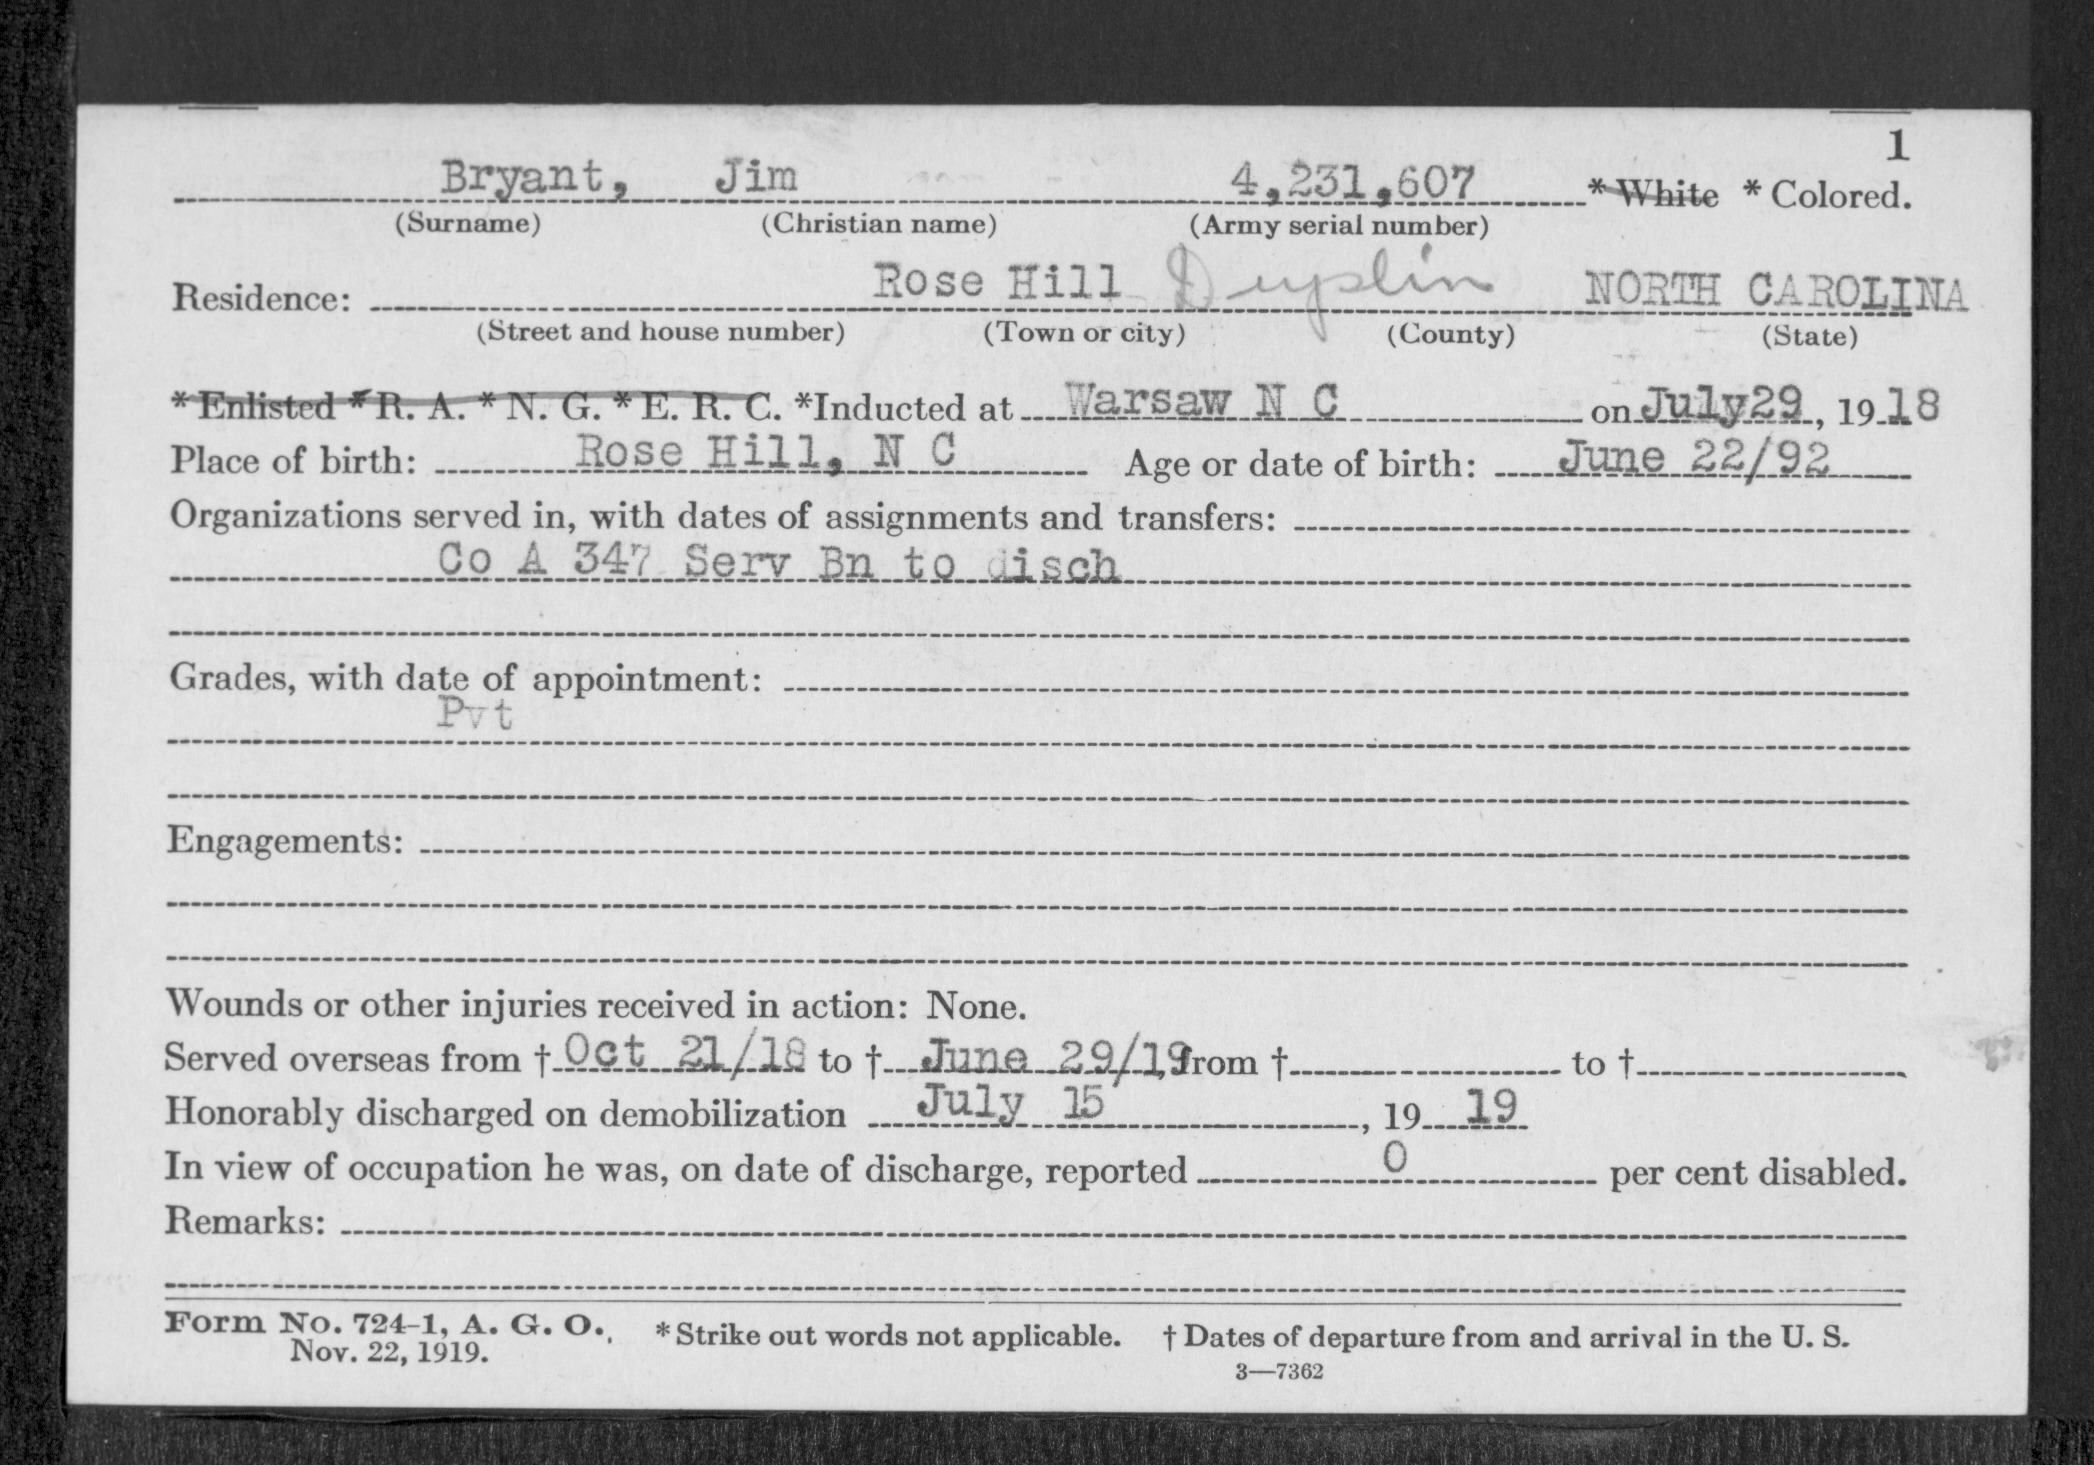 1
Bryant, Jim 4,231,607 *White *Colored.
(Surname) (Christian name) (Army serial number)
Residence: Rose Hill Duplin NORTH CAROLINA
(Street and house number) (Town or city) (County) (State)
*Enlisted *R. A. *N. G. *E. R. C. *Inducted at Warsaw N C on July 29, 19 18
Place of birth: Rose Hill, N C Age or date of birth: June 22/92
Organizations served in, with dates of assignments and transfers:
Co A 347 Serv Bn to disch
Grades, with date of appointment:
Pvt
Engagements:
Wounds or other injuries received in action: None.
Served overseas from † Oct 21/18 to † June 29/19, from † to †
Honorably discharged on demobilization July 15, 19 19
In view of occupation he was, on date of discharge, reported 0 per cent disabled.
Remarks:
Form No. 724-1, A. G. O. *Strike out words not applicable. † Dates of departure from and arrival in the U. S.
Nov. 22, 1919.
3—7362